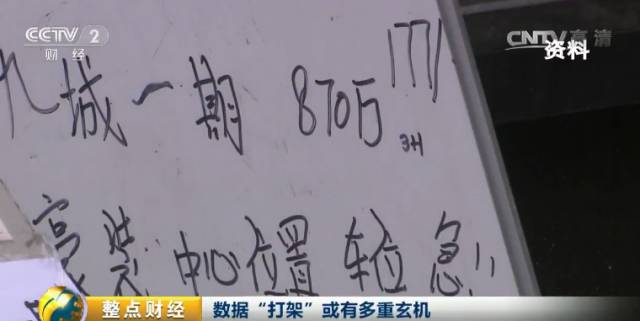 CCTV 2
财经
CNTV 高清
资料
九城一期 870万 177㎡
3H
豪装 中心位置 车位 急!!
整点财经 数据“打架”或有多重玄机